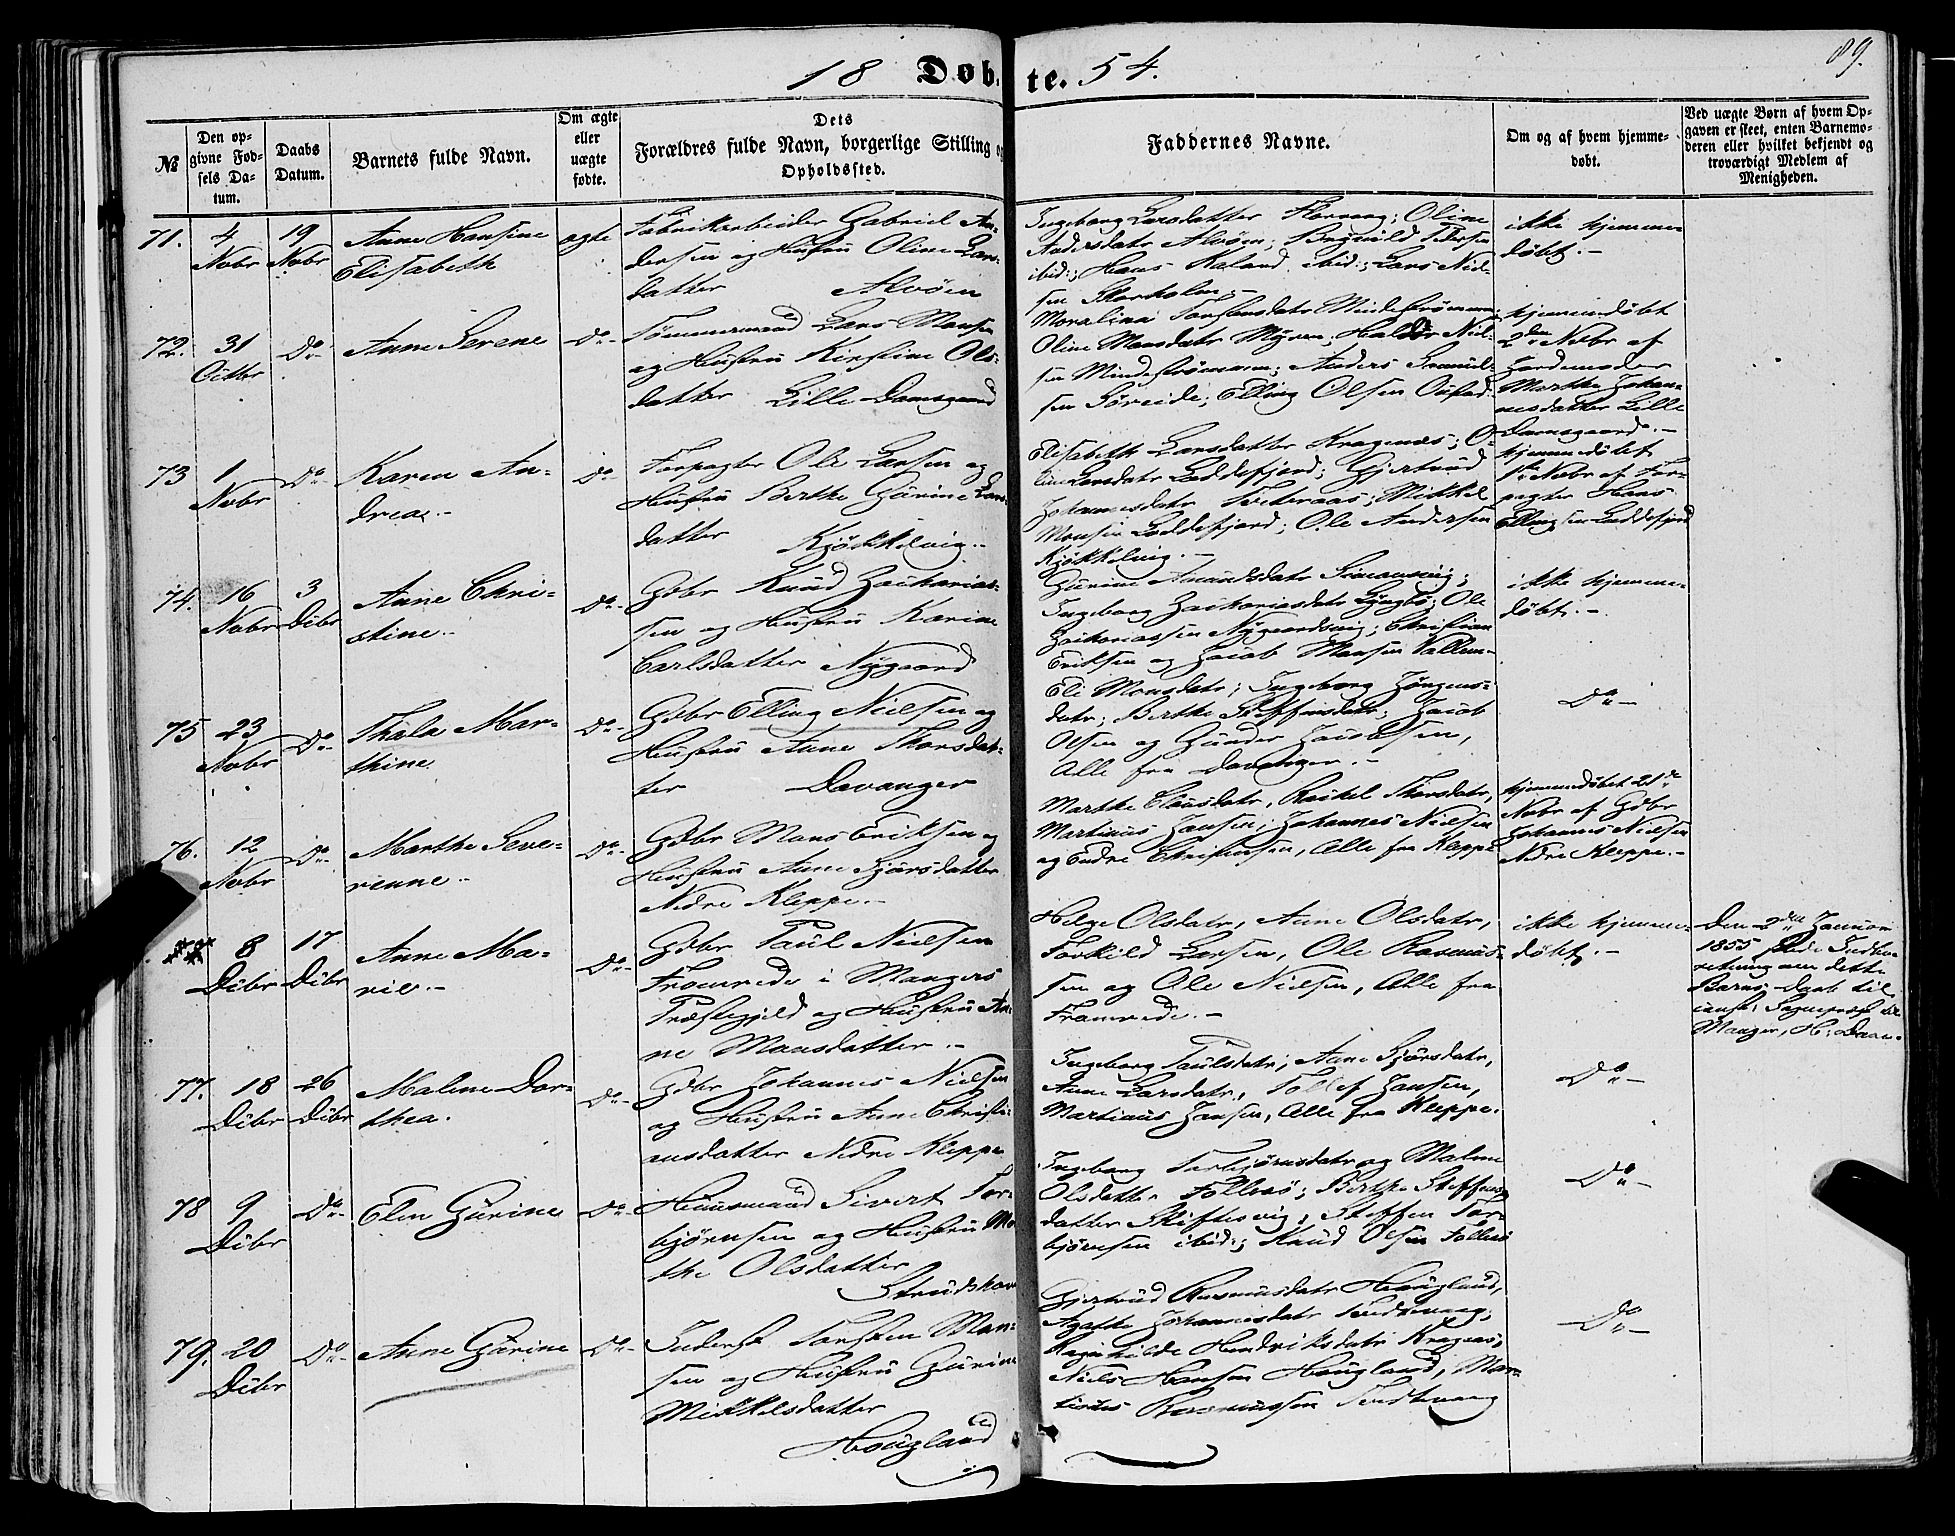 89.
18 Døbte. 54.
№
Den opgivne Fødsels Datum.
Daabs Datum.
Barnets fulde Navn.
Om ægte eller uægte fødte.
Dets Forældres fulde Navn, borgerlige Stilling og Opholdssted.
Faddernes Navne.
Om og af hvem hjemmedøbt.
Ved uægte Børn af hvem Opgaven er skeet, enten Barnemoderen eller hvilket bekjendt og troværdigt Medlem af Menigheden.
71.
4
Nobr
19
Nobr
Anne Hansine
Elisabeth
ægte
Fabrikarbeider Gabriel An-
dersen og Hustru Oline Lars-
datter Alvøen
Ingeborg Larsdatter ; Oline
Andersdatr Alvøen; Brynild Pedersen
ibid:; Hans Haland ibid:; Lars Niel-
sen Storholm,-
ikke hjemme-
døbt.-
72.
31
Octbr
Do-
Anne Serene
Do-
Tømmermand Lars Monsen
og Hustru Kirstine Ols-
datter Lille-Damsgaard
Torstensdatr Mindestrømmen;
Oline Monsdatr Myren; Haldor Niel-
sen Mindestrømmen; Anders
sen Søreide; Elling Olsen
hjemmedøbt
2den Nobr af
Jordemoder
Marthe Johan-
nesdatter Lille
Damsgaard.-
73
1
Nobr
Do-
Karen An-
drea.-
Do-
Forpagter Ole Larsen og
Hustru Berthe Gurine Lars-
datter Kjøkkelvig.-
Elisabeth Larsdatter Kragenæs; O-
line Larsdatr Loddefjord; Gjertrud
Johannesdatr ; Mikkel
Monsen Loddefjord; Ole Andersen
Kjøkkelvig.-
hjemmedøbt
1ste Nobr af For-
pagter Hans
Ellingsen Loddefjord
74.
16
Nobr
3
Dcbr
Anne Chri-
stine.-
Do-
Gdbr Knud Zacharias-
sen og Hustru Karine
Carlsdatter Nygaard
Gurine Amundsdatr Simonsvig;
Ingeborg Zachariasdatr Lyngbø; Ole
Zachariassen Nygaardsvig; Christian
Eriksen og Jacob Monsen
ikke hjemme-
døbt.-
75
23
Nobr
Do-
Thala Mar-
thine
Do-
Gdbr Elling Nielsen og
Hustru Anne Thorsdat-
ter Davanger
Eli Monsdatr; Ingeborg Jørgens-
datr; Berthe Steffensdatr; Jacob
Olsen og Gunder Jacobsen,
Alle fra Davanger.-
Do-
76.
12
Nobr
Do-
Marthe Seve-
rinne.-
Do-
Gdbr Mons Eriksen og
Hustru Anne Sjørsdatter
Nedre Kleppe.-
Marthe Clausdatr, Rachel Thorsdatr,
Martinus Jansen, Johannes Nielsen
og Endre Christensen, Alle fra Kleppe
hjemmedøbt 21de
Nobr af Gdbr
Johannes Nielsen
Nedre Kleppe.-
8
Dcbr
17
Dcbr
Anne Ma-
rie.-
Do-
Gdbr Paul Nielsen
Fromrede i Mangers
Præstegjeld og Hustru An-
ne Monsdatter.-
Helge Olsdatr, Anne Olsdatr,
Torkild Larsen, Ole Rasmus-
sen og Ole Nielsen, Alle fra
Fromrede.-
ikke hjemme-
døbt.-
Den 2den Januar
1855 Indbe-
retning om dette
Barns Daab til-
Sognepræst til
Manger, H: Daae.-
77.
18
Dcbr
26
Dcbr
Malene Dor-
thea.
Do-
Gdbr Johannes Nielsen
og Hustru Anne Christi-
ansdatter Nedre Kleppe
Ingeborg Paulsdatr; Anne Sjørsdatr,
Anne Larsdatr, Tollef Jansen,
Martinus Jansen, Alle fra Kleppe.
Do-
78
9
Dcbr
Do-
Elen Gurine
Do-
Huusmand Sivert Tor-
bjørnsen og Hustru Mar-
the Olsdatter
Strudshavn
Ingeborg Torbjørnsdatr og Malene
Olsdatter Follesø; Berthe Steffens-
datter Skiftesvig, Steffen Tor-
bjørnsen ibid:; Knud Olsen Follesø
Do-
79.
20
Dcbr
Do-
Anne Gurine
Do-
Inderst Torsten Mon-
sen og Hustru Gurine
Mikkelsdatter
Hougland
Gjertrud Rasmusdatr Hougland,
Agathe Johannesdatr Tveitevaag;
Ragnhilde Hendriksdatr Kragenæs;
Niels Hansen Hougland, Mar-
tinus Rasmussen Tveitevaag
Do-